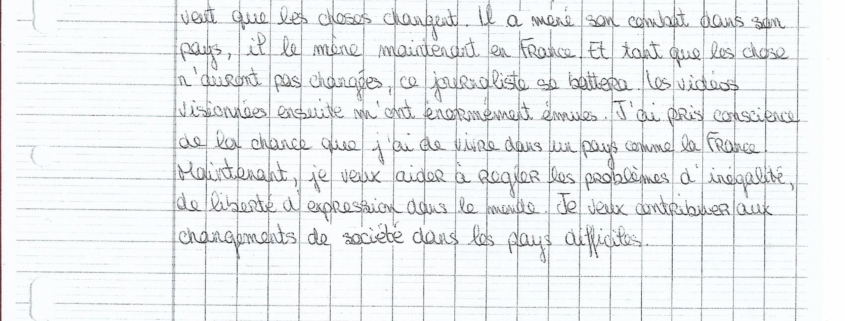 veut que les choses changent. Il a mené son combat dans son
pays, il le mène maintenant en France. Et tant que les chose
n'auront pas changées, ce journaliste se battera. Les vidéos
visionnées ensuite m'ont énormément émues. J'ai pris conscience
de la chance que j'ai de vivre dans un pays comme la France.
Maintenant, je veux aider à régler les problèmes d'inégalité,
de liberté d'expression dans le monde. Je veux contribuer aux
changements de société dans les pays difficiles.